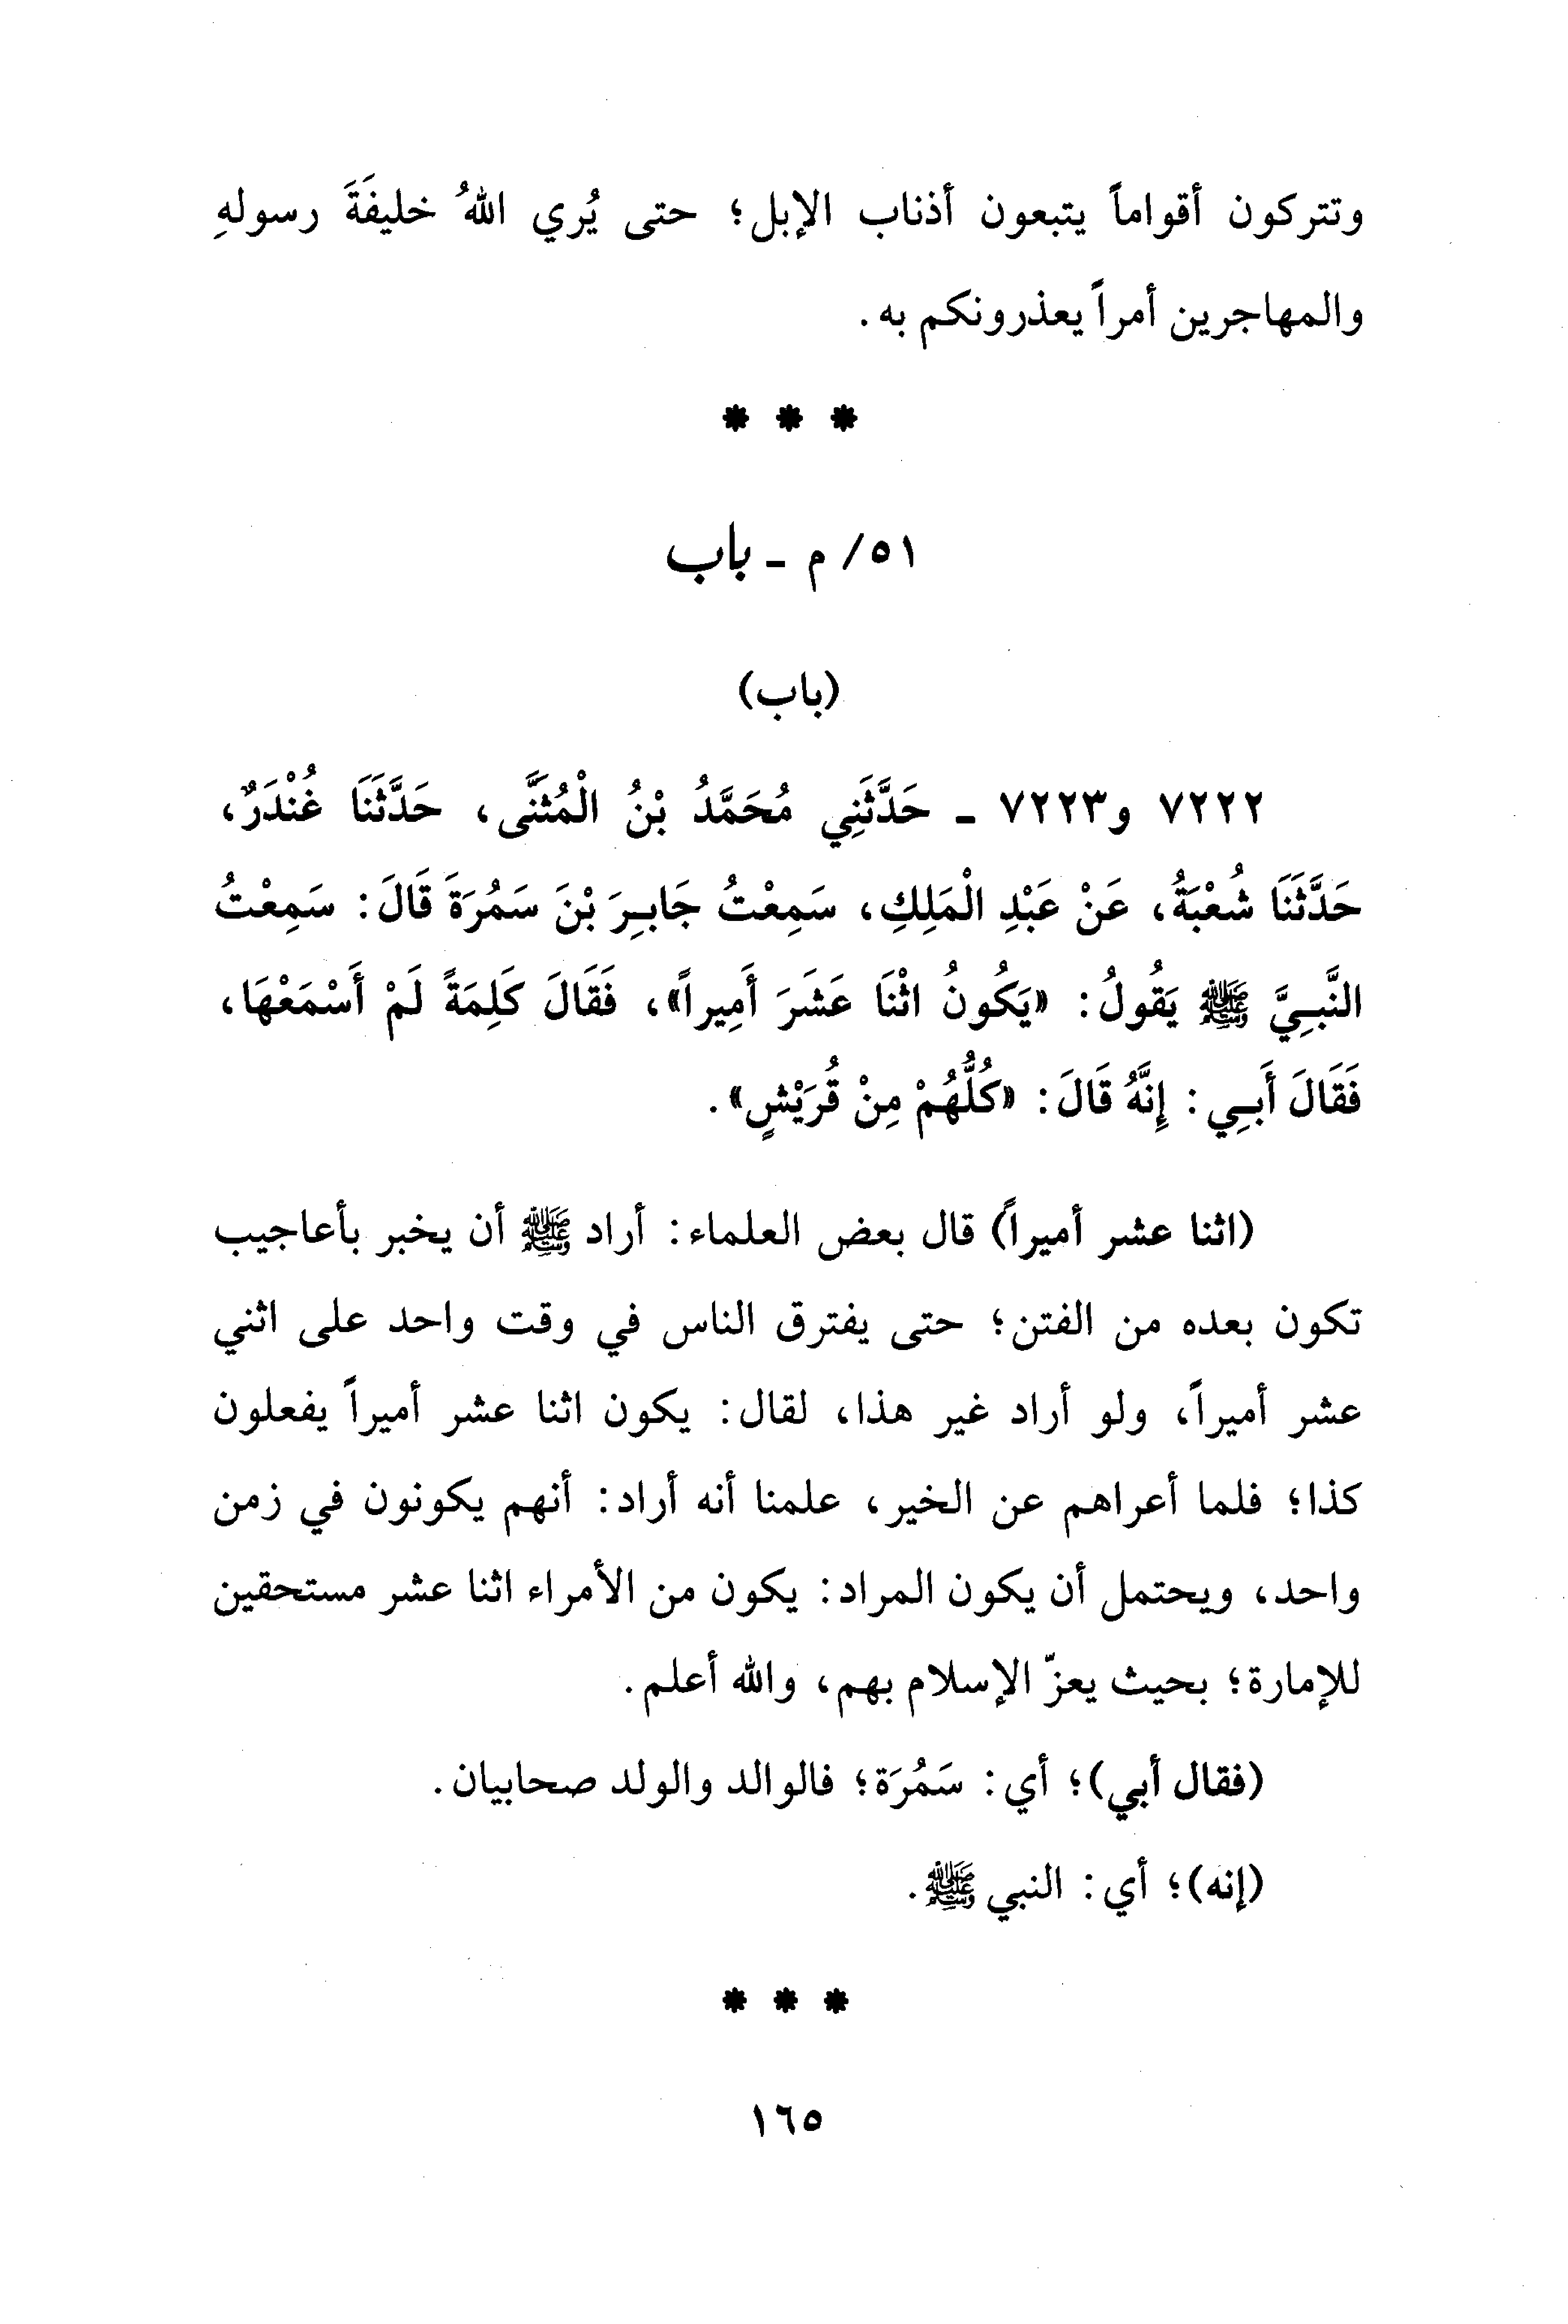 وتتركون أقواماً يتبعون أذناب الإبل؛ حتى يُري اللهُ خليفَةَ رسولهِ
والمهاجرين أمراً يعذرونكم به.
* * *
٥١/ م - باب
(باب)
٧٢٢٢ و٧٢٢٣ - حَدَّثَنِي مُحَمَّدُ بْنُ الْمُثَنَّى، حَدَّثَنَا غُنْدَرٌ،
حَدَّثَنَا شُعْبَةُ، عَنْ عَبْدِ الْمَلِكِ، سَمِعْتُ جَابِرَ بْنَ سَمُرَةَ قَالَ: سَمِعْتُ
النَّبِيَّ ﷺ يَقُولُ: «يَكُونُ اثْنَا عَشَرَ أَمِيراً»، فَقَالَ كَلِمَةً لَمْ أَسْمَعْهَا،
فَقَالَ أَبِي: إِنَّهُ قَالَ: «كُلُّهُمْ مِنْ قُرَيْشٍ».
(اثنا عشر أميراً) قال بعض العلماء: أراد ﷺ أن يخبر بأعاجيب
تكون بعده من الفتن؛ حتى يفترق الناس في وقت واحد على اثني
عشر أميراً، ولو أراد غير هذا، لقال: يكون اثنا عشر أميراً يفعلون
كذا؛ فلما أعراهم عن الخير، علمنا أنه أراد: أنهم يكونون في زمن
واحد، ويحتمل أن يكون المراد: يكون من الأمراء اثنا عشر مستحقين
للإمارة؛ بحيث يعزّ الإسلام بهم، والله أعلم.
(فقال أبي)؛ أي: سَمُرَة؛ فالوالد والولد صحابيان.
(إنه)؛ أي: النبي ﷺ.
* * *
١٦٥